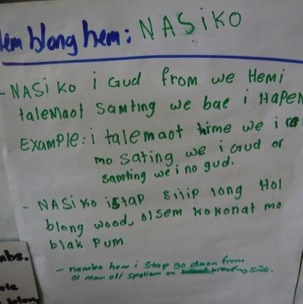 Nem blong hem: NASIKO
- NASIKO i Gud from we Hemi
talemaot samting we bae i HAPEN
EXAMPLE: i talemaot time we i
mo sating we i Gud or
samting we i no gud.
- NASIKO istap silip long Hol
blong wood, olsem kokonat mo
blak Pum
- namba hem i stap go daon from
ol man oli spoliem
abs.